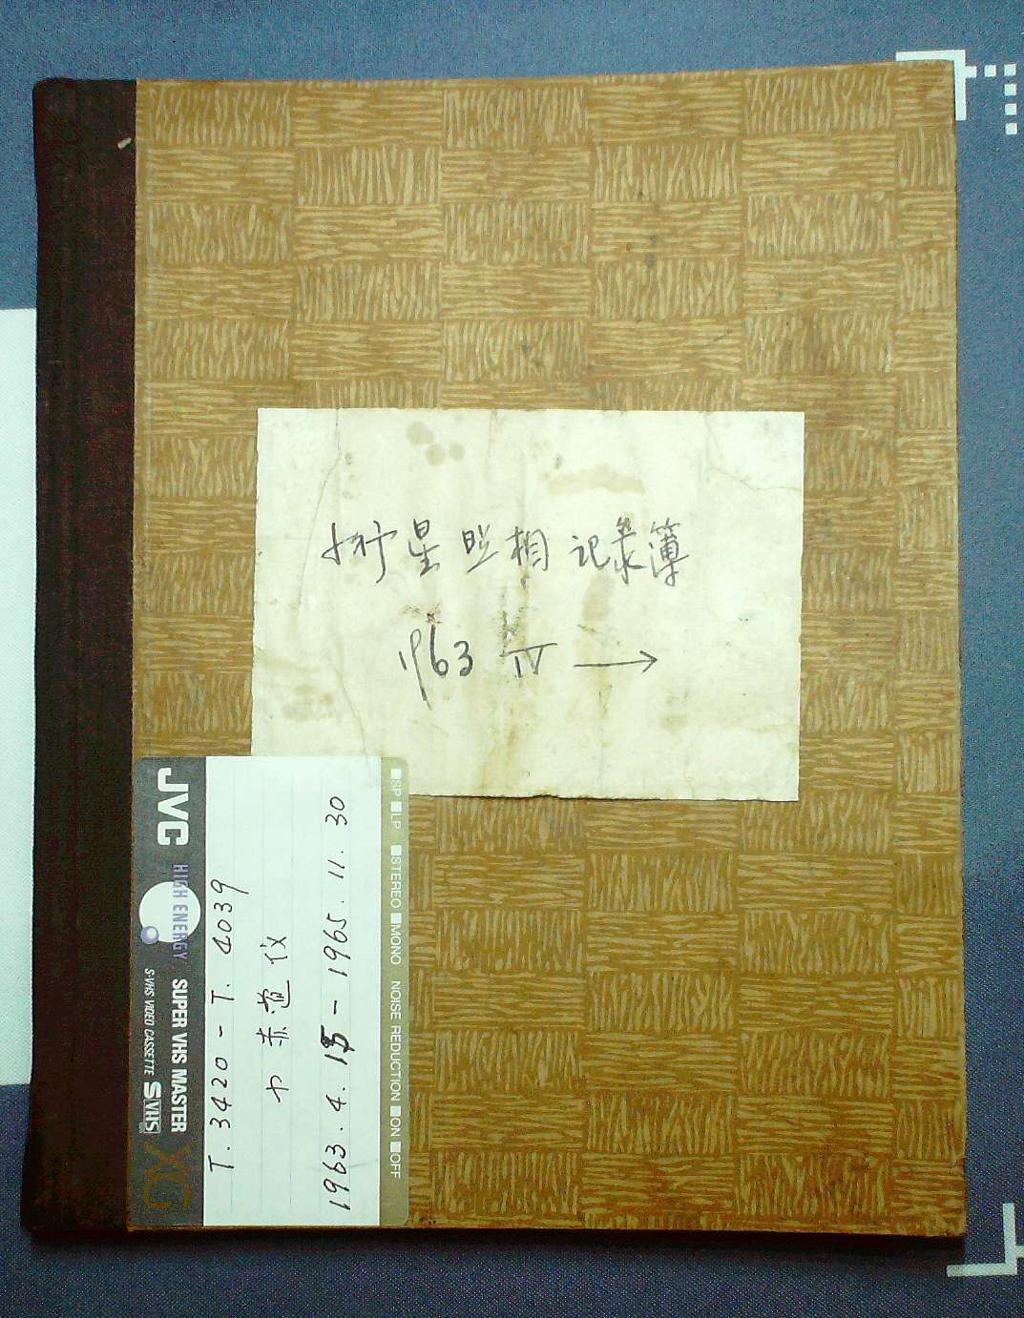 小行星照相记录簿
1963 IV →
JVC HIGH ENERGY SUPER VHS MASTER XG
S-VHS VIDEO CASSETTE SVHS
T.3420 - T.4039
赤道仪
1963.4.15 - 1965.11.30
■SP ■LP ■STEREO ■MONO NOISE REDUCTION ■ON ■OFF